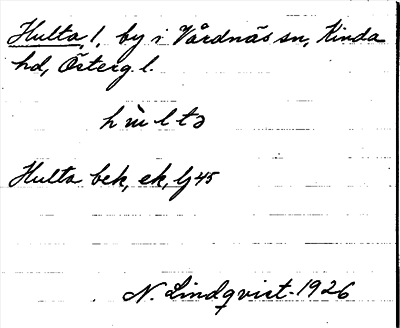 Hulta, !, by i Vårdnäs sn, Kinda
hd, Österg. l.
hùltə
Hulta bek, ek, lj 45
N. Lindqvist 1926